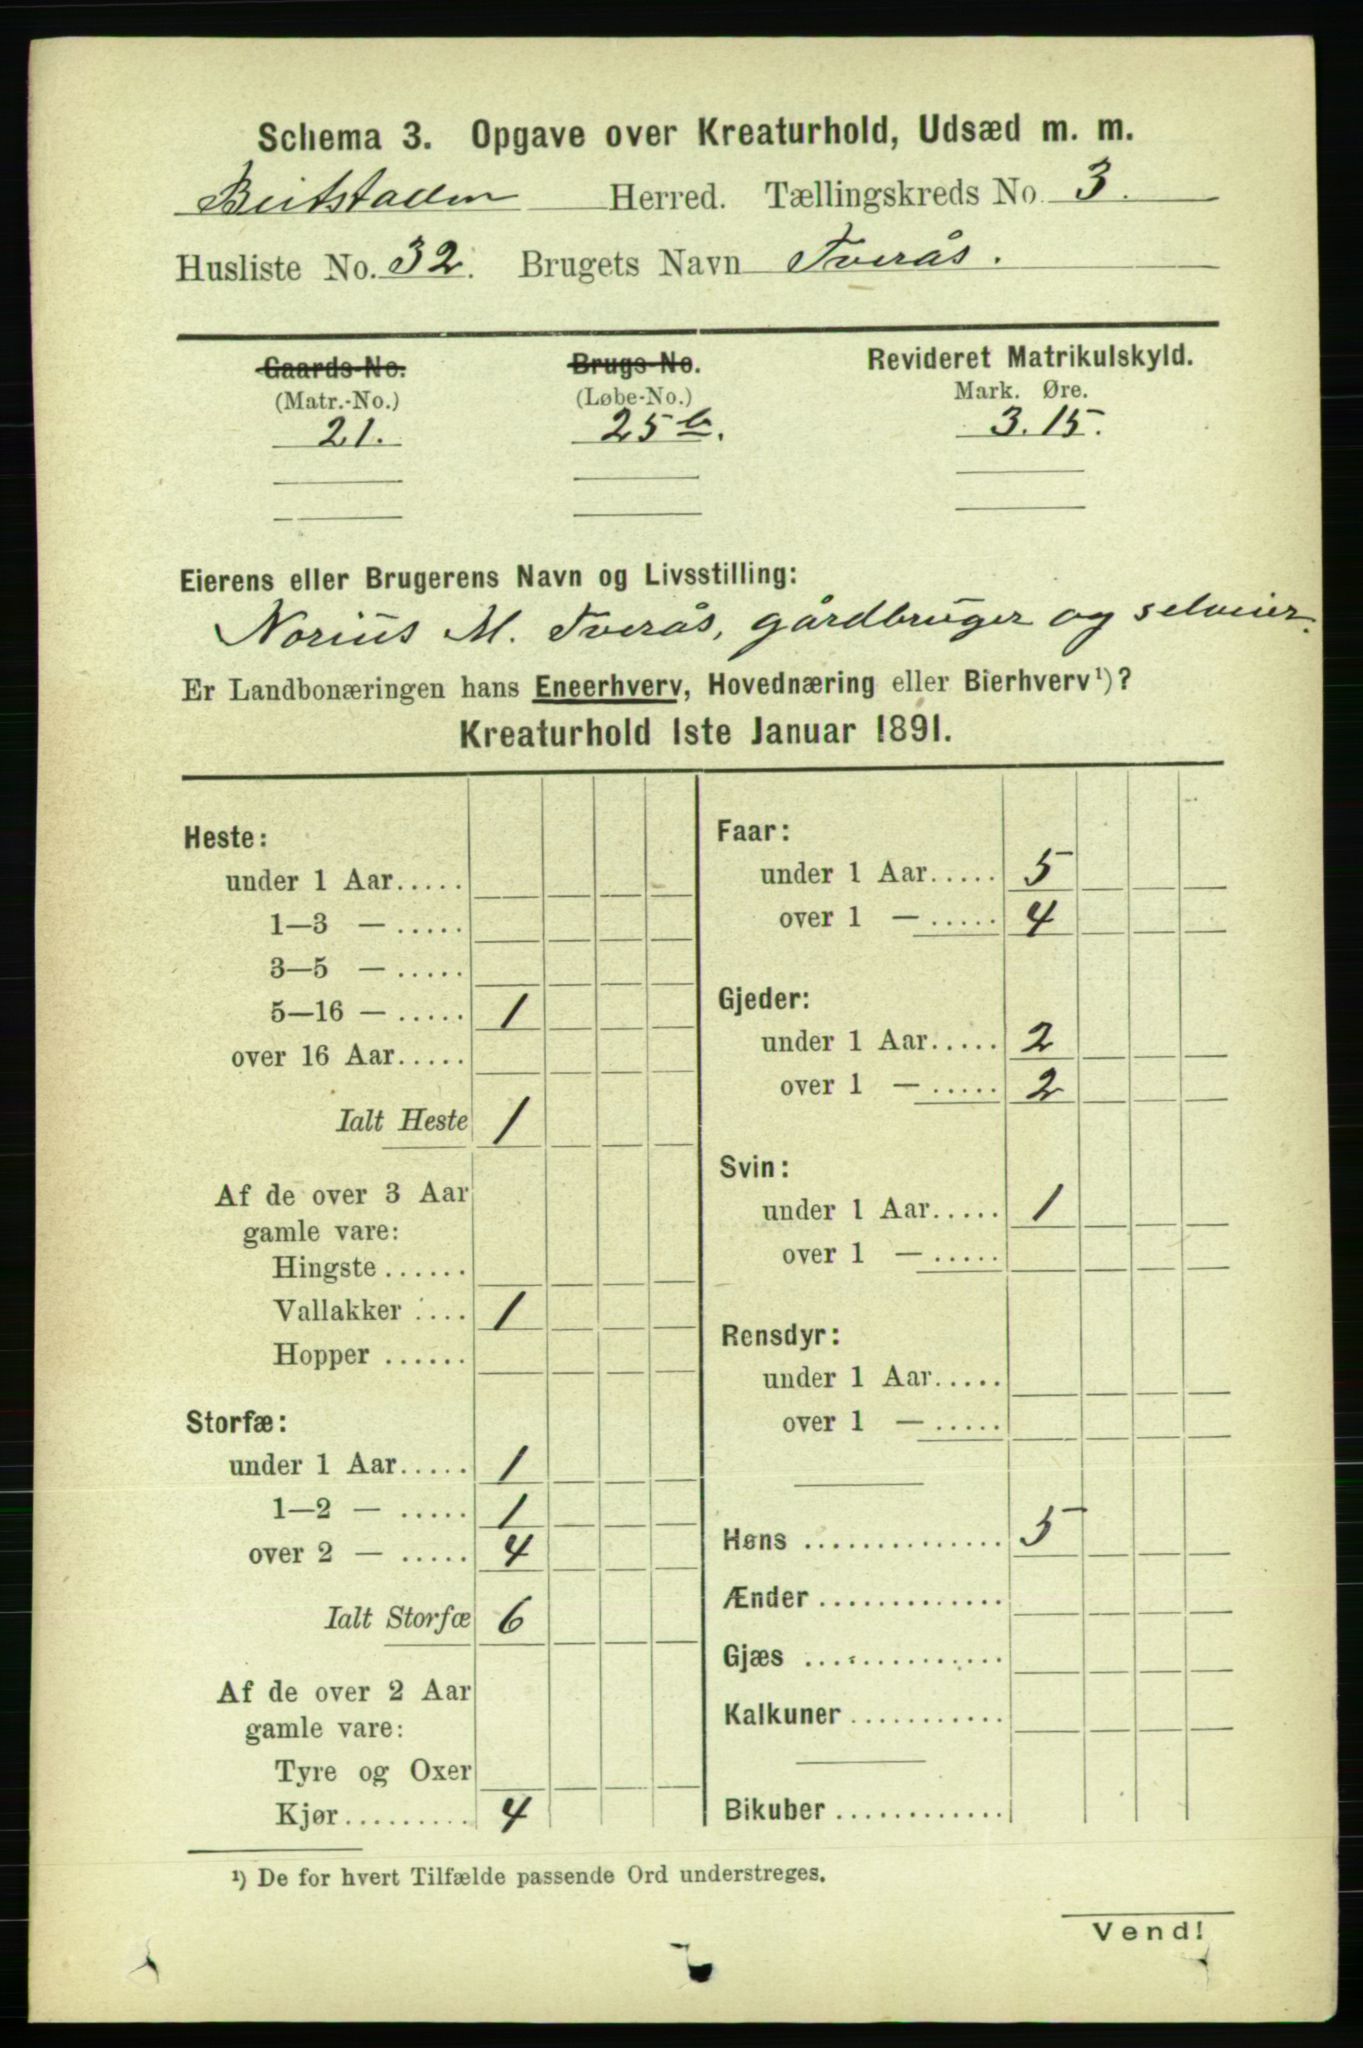 Schema 3. Opgave over Kreaturhold, Udsæd m. m.
Beitstaden Herred. Tællingskreds No. 3.
Husliste No. 32. Brugets Navn Tverås.
Gaards-No. Brugs-No. Revideret Matrikulskyld.
(Matr.-No.) (Løbe-No.) Mark. Øre.
21. 25 b. 3.15.
Eierens eller Brugerens Navn og Livsstilling:
Norius M. Tverås, gårdbruger og selveier.
Er Landbonæringen hans Eneerhverv, Hovednæring eller Bierhverv¹)?
Kreaturhold 1ste Januar 1891.
Heste:
under 1 Aar.....
1—3 — .....
3—5 — .....
5—16 — ..... 1
over 16 Aar.....
Ialt Heste 1
Af de over 3 Aar
gamle vare:
Hingste......
Vallakker .... 1
Hopper ......
Storfæ:
under 1 Aar..... 1
1—2 — ..... 1
over 2 — ..... 4
Ialt Storfæ 6
Af de over 2 Aar
gamle vare:
Tyre og Oxer
Kjør......... 4
Faar:
under 1 Aar..... 5
over 1 — ..... 4
Gjeder:
under 1 Aar..... 2
over 1 — ..... 2
Svin:
under 1 Aar..... 1
over 1 — .....
Rensdyr:
under 1 Aar.....
over 1 — .....
Høns .............. 5
Ænder .............
Gjæs ..............
Kalkuner ...........
Bikuber ............
¹) De for hvert Tilfælde passende Ord understreges.
Vend!